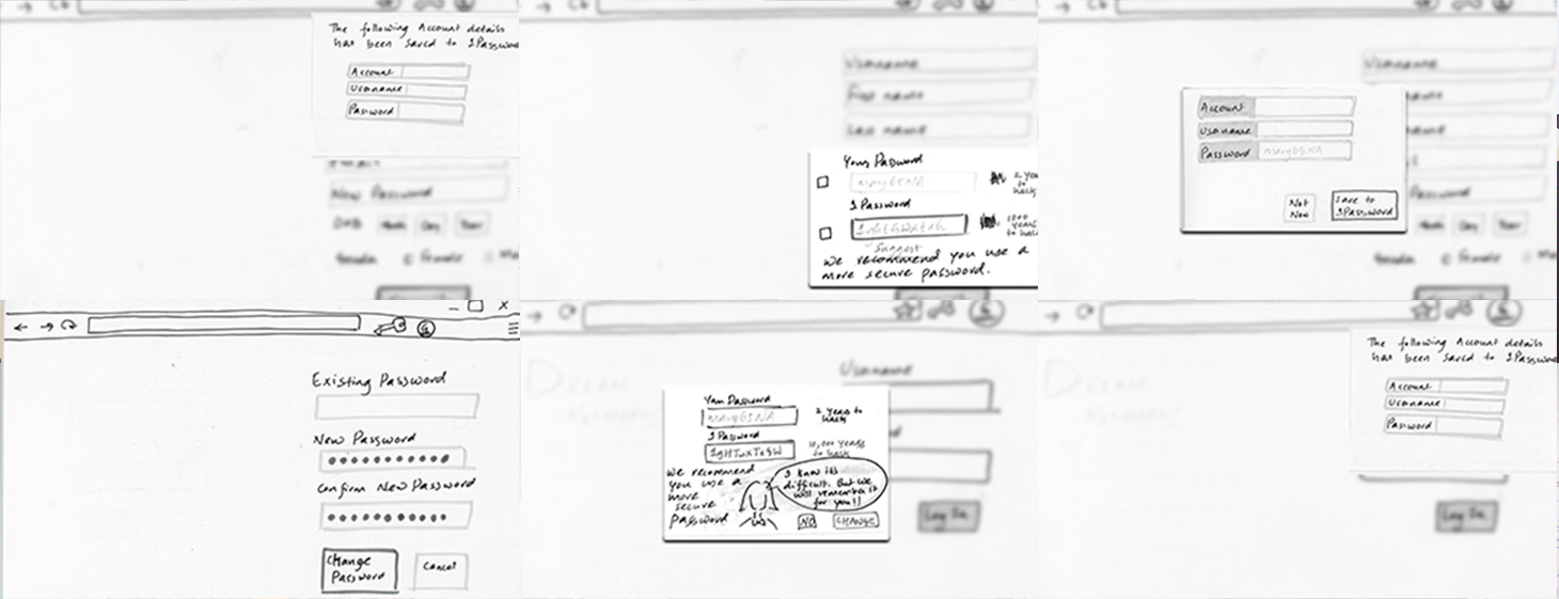 The following Account details
has been saved to 1Password
Account
Username
Password
New Password
DOB
Month
Day
Year
Gender
Female
Username
First name
Last name
Your Password
MaryGSNA
2 years
to
hack
1Password
1000
years
to hack
Suggest
We recommend you use a
more secure password.
Username
Account
Username
Password
Not
Now
Save to
1Password
Password
Month
Day
Year
Gender
Female
X
Existing Password
New Password
Confirm New Password
Change
Password
Cancel
DREAM
Username
Your Password
2 years to
hack
1Password
10,000 years
to hack
We recommend
you use a
more
secure
password
I know its
difficult. But we
will remember it
for you!!
NO
CHANGE
Log In
DREAM
The following Account details
has been saved to 1Password
Account
Username
Password
Log In